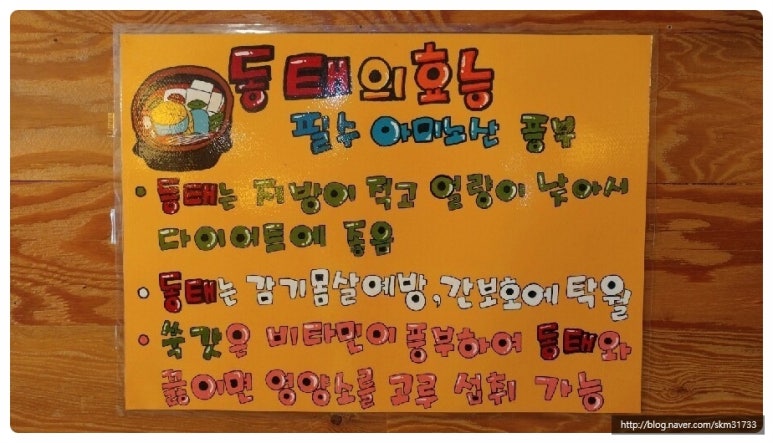 동태의효능
필수 아미노산 풍부
• 동태는 지방이 적고 열량이 낮아서
다이어트에 좋음
• 동태는 감기몸살예방, 간보호에 탁월
• 쑥갓은 비타민이 풍부하여 동태와
끓이면 영양소를 고루 섭취 가능
http://blog.naver.com/skm31733